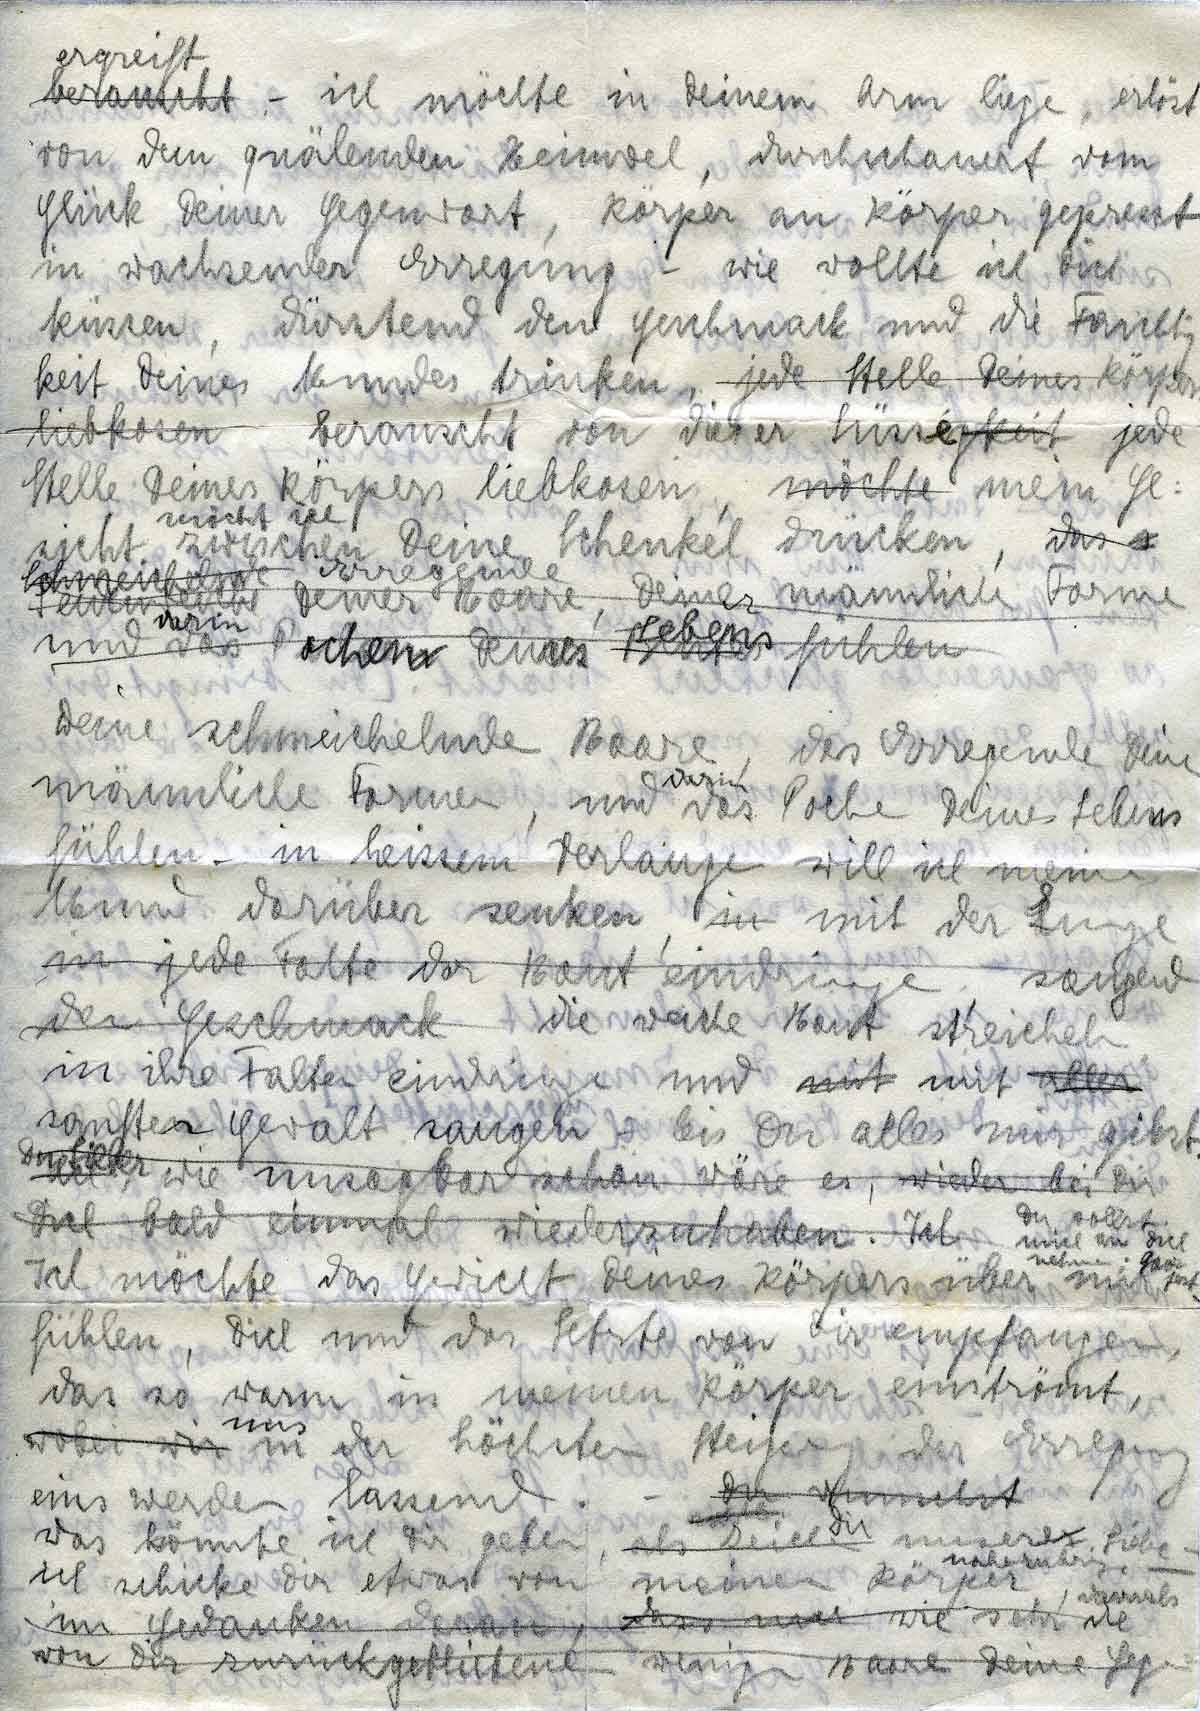 ergreift
berauscht - ich möchte in Deinem Arm liege, erlöst
von dem quälenden Heimweh, durchschauert vom
Glück Deiner Gegenwart, Körper an Körper gepresst
in wachsender Erregung - wie wollte ich Dich
küssen, dürstend den Geschmack und die Feuchtig
keit Deines Mundes trinken, jede Stelle Deines Körpers
liebkosen berauscht von dieser Süssigkeit jede
Stelle Deines Körpers liebkosen, möchte mein Ge:
möcht ich
sicht zwischen Deine Schenkel drücken, das
schmeichelnde Erregende
Deiner Haare, Deiner männliche Forme
darin Lebens
und das Pochen Deines fühlen
Deine schmeichelnde Haare, das Erregende Deine
darin
männliche Formen, und das Poche Deines Lebens
fühlen - in heissem Verlange will ich meine
Mund darüber senken, in mit der Zunge
in jede Falte der Haut eindringe saugend
den Geschmack die weiche Haut streicheln
in ihre Falten eindringe und mit mit aller
sanften Gewalt saugen bis Du alles mir gibst.
wie unsagbar schön wäre es, wieder bei Dir
Dich bald einmal wiederzuhaben. Ich
Du sollst
mich an Dich
nehmen, ganz
Ich möchte das Gewicht Deines Körpers über mir
fühlen, Dich und das Letzte von Dir empfangen,
das so warm in meinen Körper einströmt,
uns
wobei wir in der höchsten Steigerung der Erregung
eins werden lassend. -
was könnte ich Dir geben, als Zeichen unserer Liebe -
ich schicke dir etwas von meinem Körper
im Gedanken daran, dass nur wie sehr die
damals
von Dir zurückgebliebene wenige Haare Deine Gege